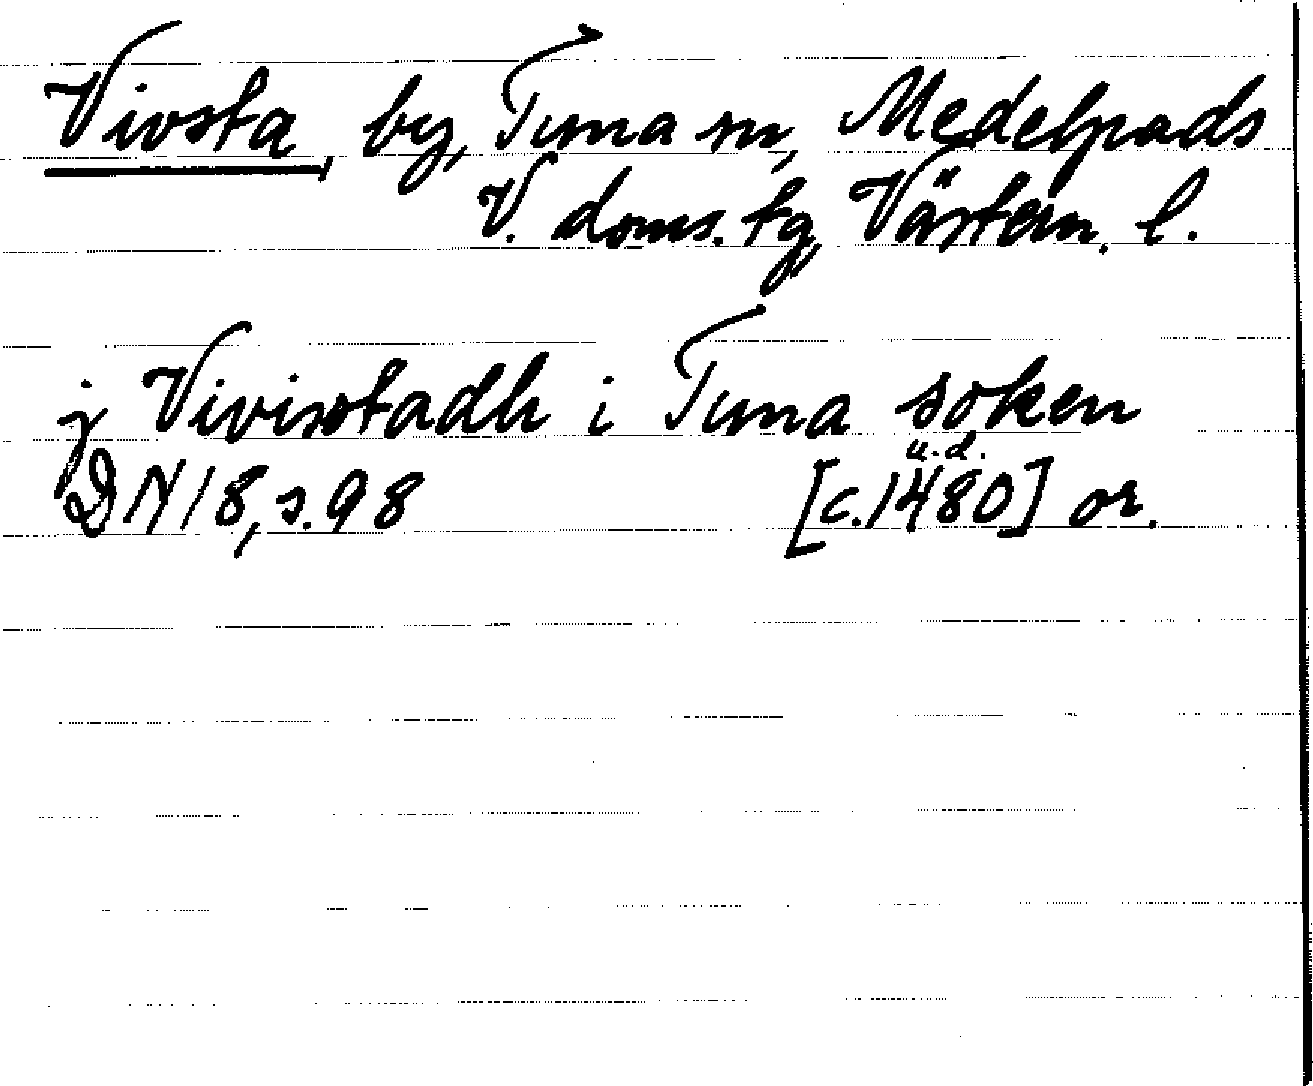 Vivsta, by, Tuna sn, Medelpads
V. doms. tg, Västern. l.
j Vivistadh i Tuna soken
u.d.
DN 18, s. 98 [c. 1480] or.